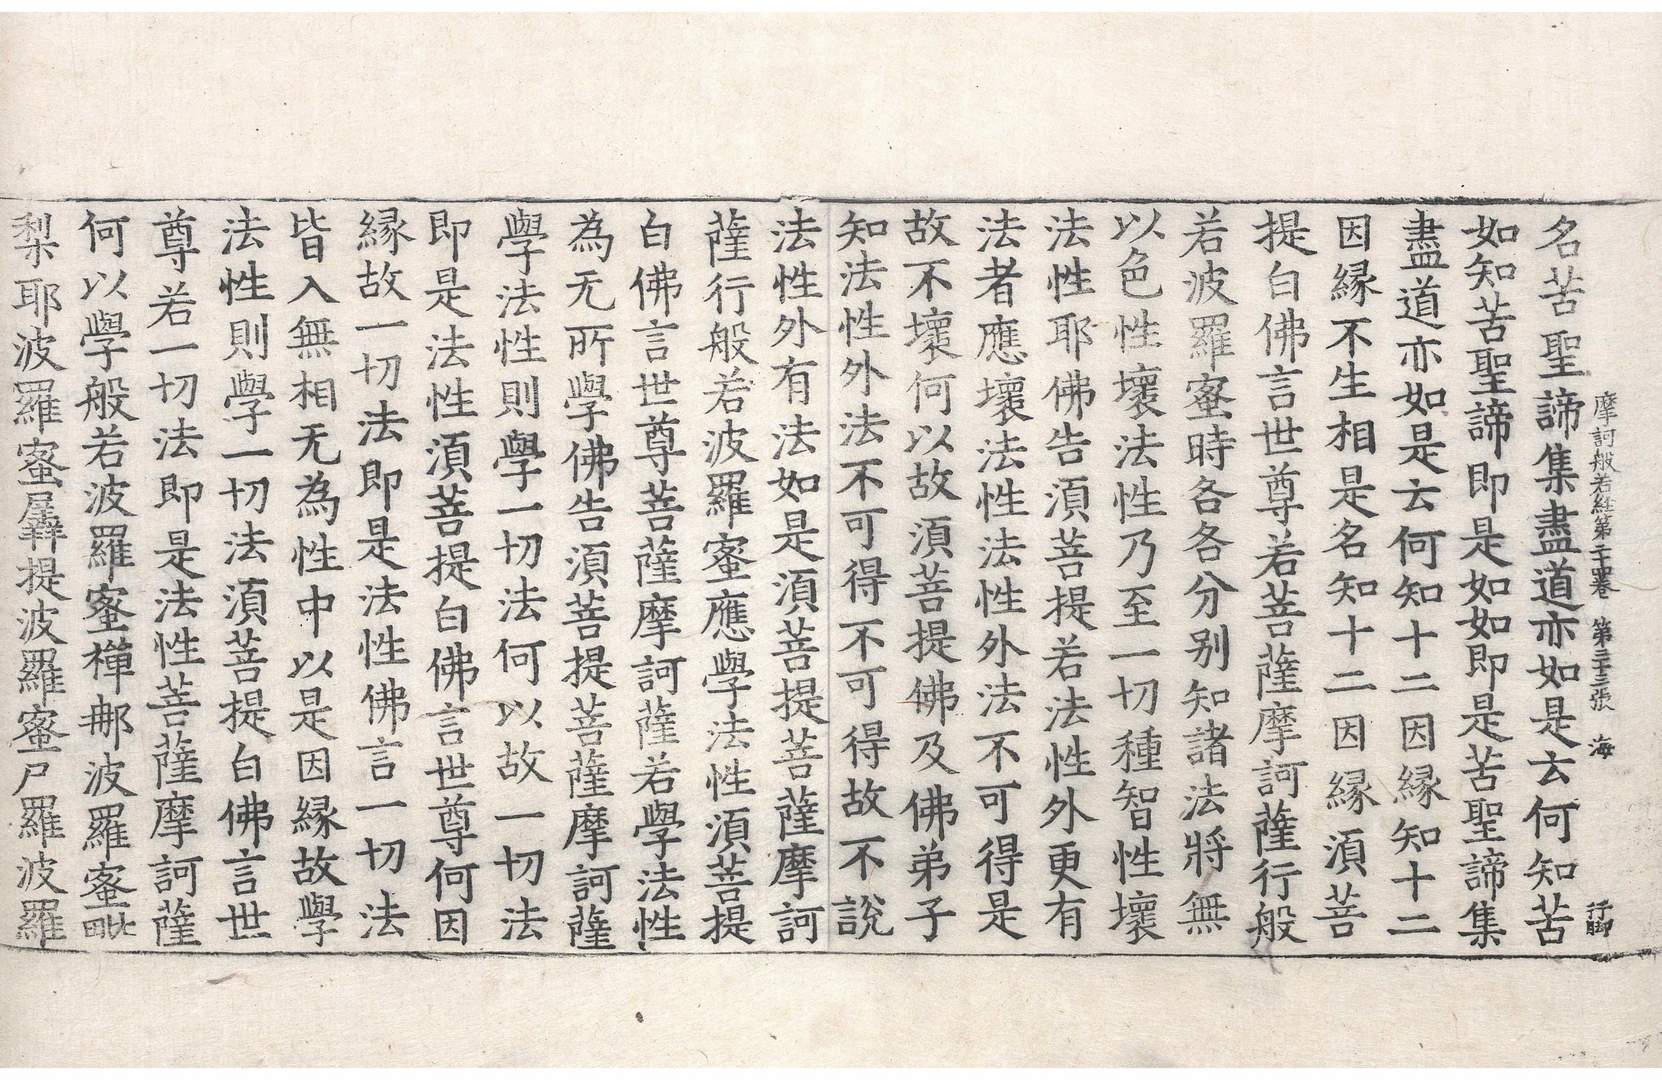 摩訶般若經第二十四卷 第三十三張 海
名苦聖諦集盡道亦如是云何知苦
如知苦聖諦即是如如即是苦聖諦集
盡道亦如是云何知十二因縁知十二
因縁不生相是名知十二因縁湏菩
提白佛言世尊若菩薩摩訶薩行般
若波羅蜜時各各分别知諸法將無
以色性壞法性乃至一切種智性壞
法性耶佛告湏菩提若法性外更有
法者應壞法性法性外法不可得是
故不壞何以故湏菩提佛及佛弟子
知法性外法不可得不可得故不說
法性外有法如是湏菩提菩薩摩訶
薩行般若波羅蜜應學法性湏菩提
白佛言世尊菩薩摩訶薩若學法性
為无所學佛告湏菩提菩薩摩訶薩
學法性則學一切法何以故一切法
即是法性湏菩提白佛言世尊何因
縁故一切法即是法性佛言一切法
皆入無相无為性中以是因縁故學
法性則學一切法湏菩提白佛言世
尊若一切法即是法性菩薩摩訶薩
何以學般若波羅蜜禪那波羅蜜毗
梨耶波羅蜜羼提波羅蜜尸羅波羅